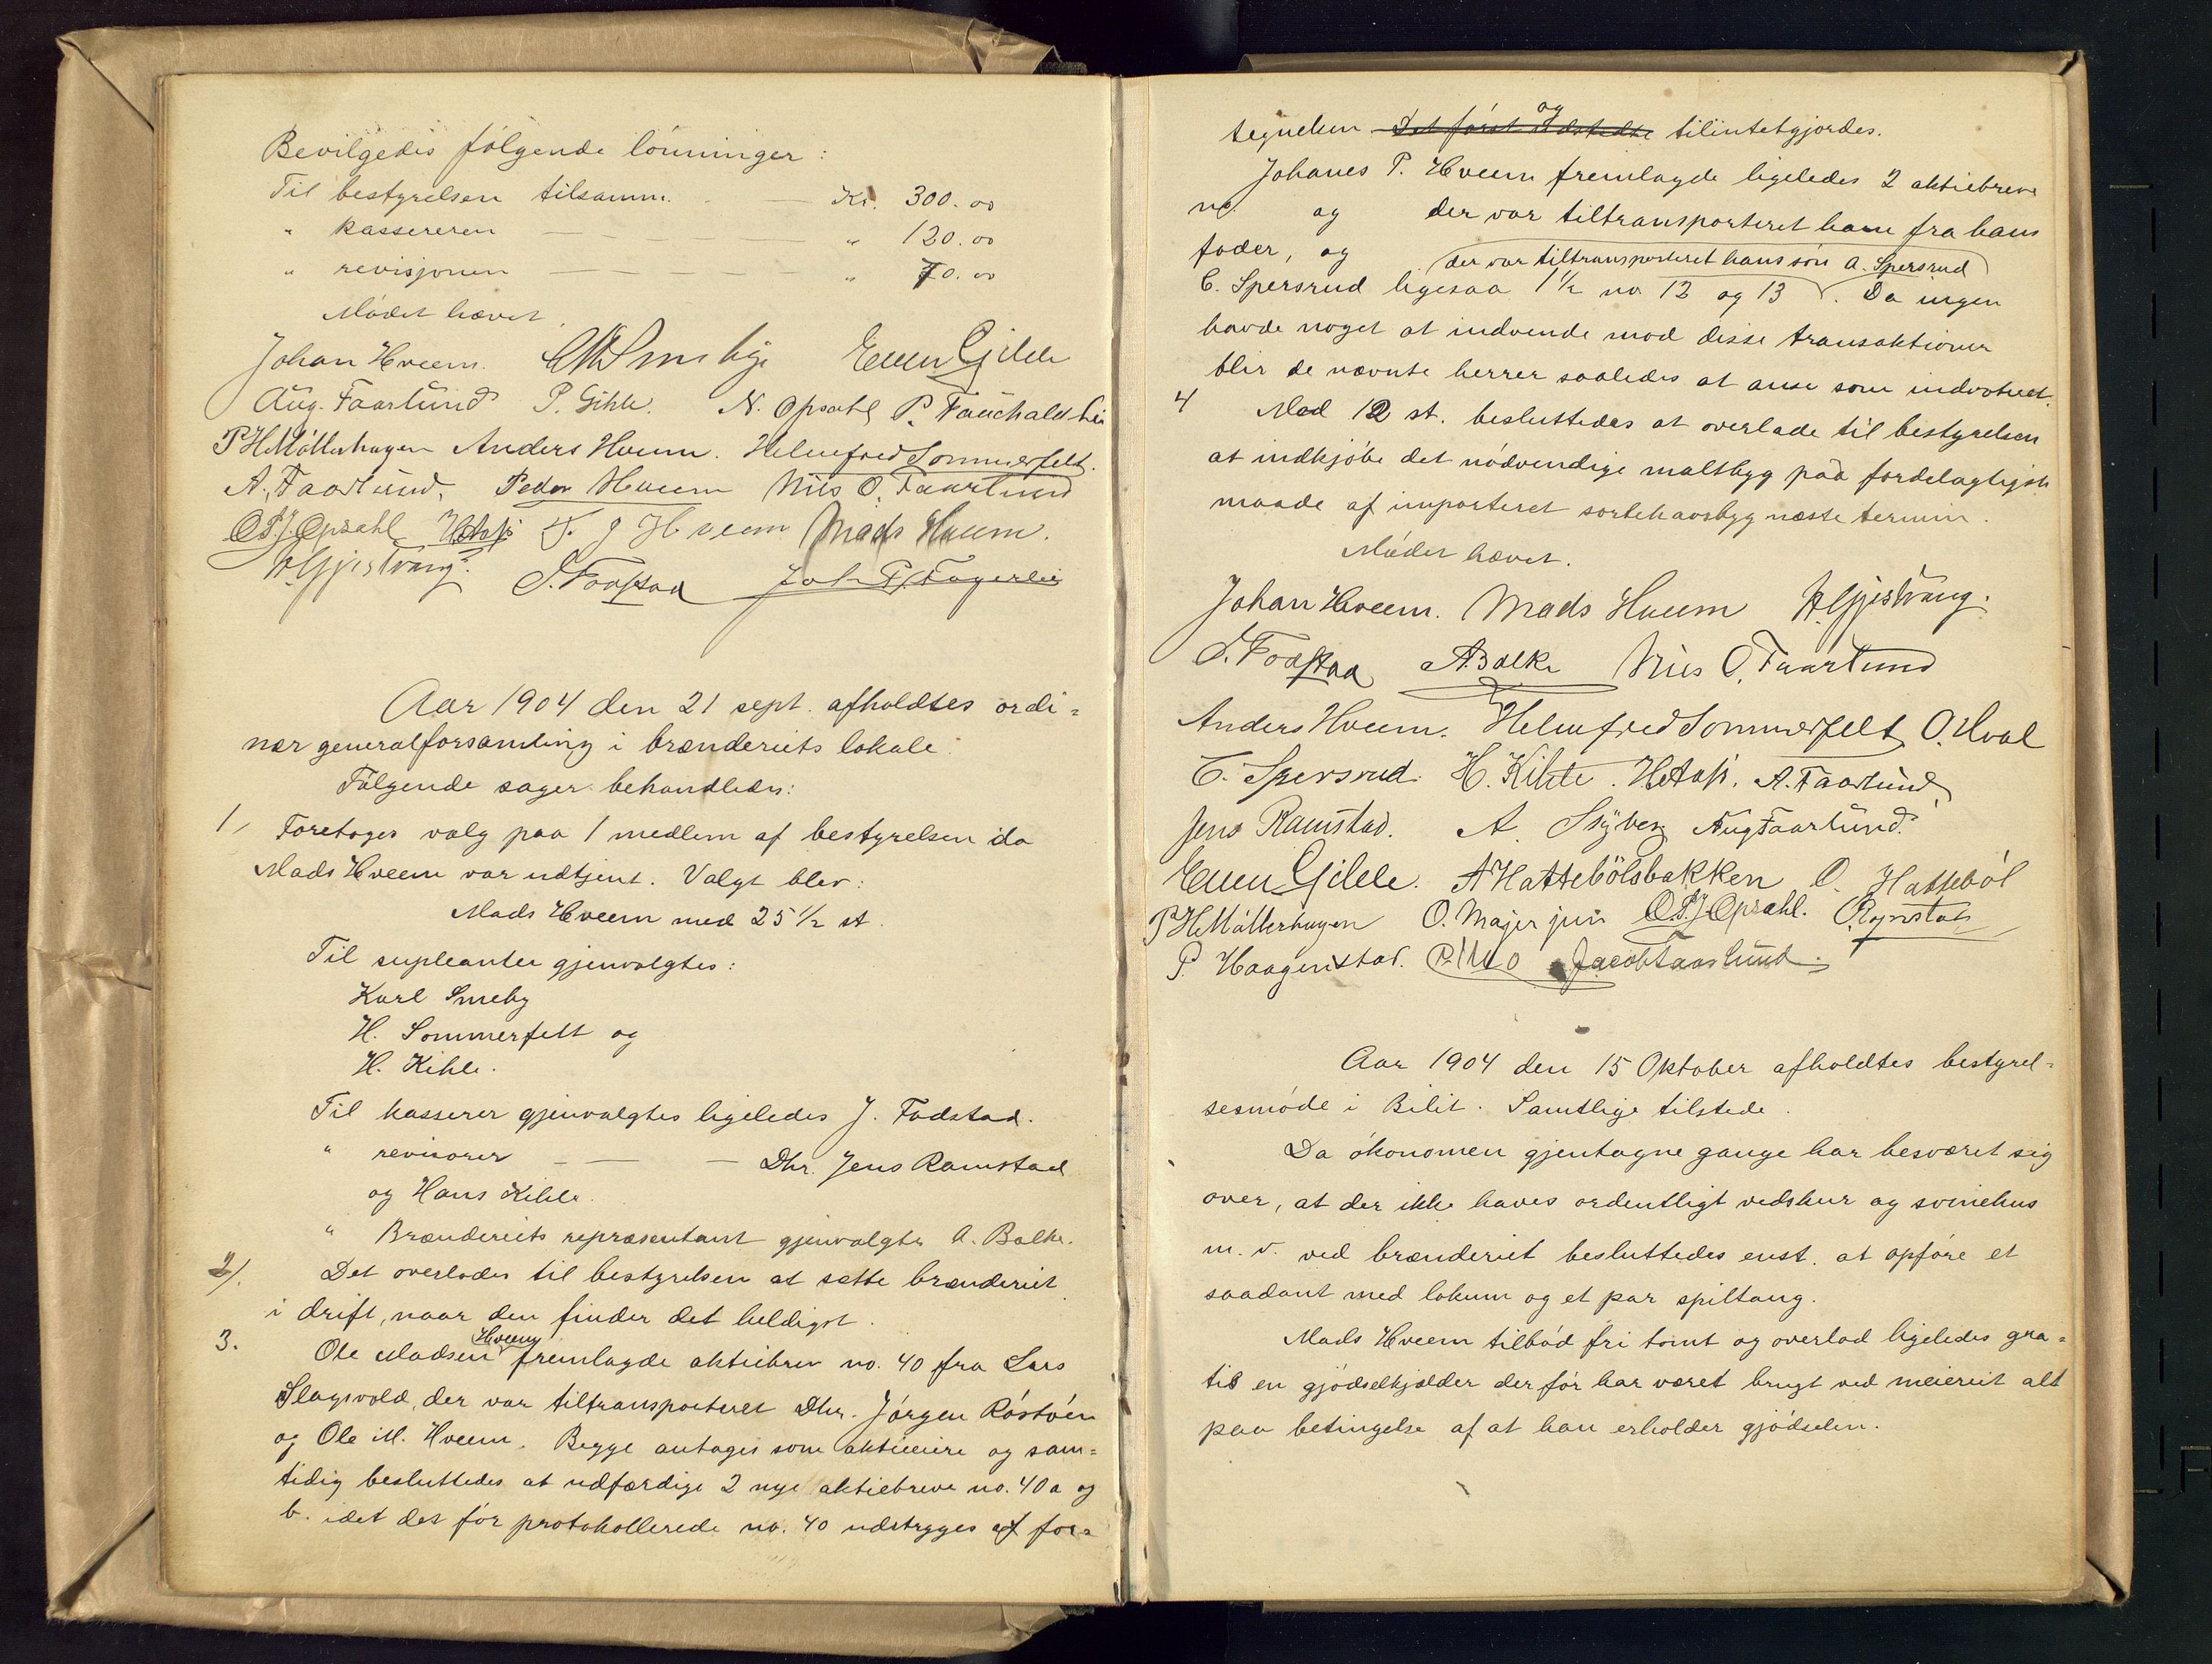 Bevilgedes følgende lønninger:
Til bestyrelsen tilsamm. — Kr. 300.00
" kassereren — — — — " 120.00
" revisjonen — — — " 70.00
Mødet hævet.
Johan Hveem. Even Gihle
Aug. Faarlund P. Gihle. N. Opsahl P. Fauchald
P H Møllerhagen Anders Hveem. Helmfred Sommerfelt.
A. Faarlund. Peder Hveem Nils O. Faarlund
O.P.J. Opsahl J Hveem Mads Hveem.
H. Gjestvang. J. Fodstad Joh. P. Fagerlie
Aar 1904 den 21 sept. afholdtes ordi=
nær generalforsamling i brænderiets lokale.
Følgende sager behandledes:
1, Foretoges valg paa 1 medlem af bestyrelsen da
Mads Hveem var udtjent. Valgt blev:
Mads Hveem med 25 1/2 st.
Til supleanter gjenvalgtes:
Karl Smeby
H. Sommerfelt og
H. Kihle.
Til kasserer gjenvalgtes ligeledes J. Fodstad.
" revisorer — — — Dhr. Jens Ramstad
og Hans Kihle.
" Brænderiets repræsentant gjenvalgtes A. Balke.
2/. Det overlodes til bestyrelsen at sætte brænderiet
i drift, naar den finder det heldigst.
3. Ole Madsen Hveem fremlagde aktiebrev no. 40 fra Lars
Slagsvold, der var tiltransporteret Dhr. Jørgen Røstøen
og Ole M. Hveem. Begge antoges som aktieeiere og sam=
tidig besluttedes at udfærdige 2 nye aktiebreve no. 40a og
b. idet det før protokollerede no. 40 udstryges af for=
tegnelsen Det først udstedte og tilintetgjordes.
Johanes P. Hveem fremlagde ligeledes 2 aktiebreve
no. og der var tiltransporteret ham fra hans
fader, og der var tiltransporteret hans søn A. Spersrud
C. Spersrud ligesaa 1 1/2 no 12 og 13. Da ingen
havde noget at indvende mod disse transaktioner
blir de nævnte herrer saaledes at anse som indvoteret.
4 Mod 12 st. besluttedes at overlade til bestyrelsen
at indkjøbe det nødvendige maltbyg paa fordelagtigste
maade af importeret sortehavsbyg næste termin.
Mødet hævet.
Johan Hveem. Mads Hveem H. Gjestvang.
J. Fodstad A Balke Nils O. Faarlund
Anders Hveem. Helmfred Sommerfelt O. Hval
C. Spersrud. H. Kihle. A. Faarlund
Jens Ramstad. A. Skyberg Aug Faarlund.
Even Gihle. A Hattebölsbakken O. Hattebøl
P H Møllerhagen O. Majer jun O.P.J. Opsahl. O. Rognstad
P. Haagenstad. Jacob Faarlund.
Aar 1904 den 15 Oktober afholdtes bestyrel=
sesmøde i Bilit. Samtlige tilstede.
Da økonomen gjentagne gange har besværet sig
over, at der ikke haves ordentligt vedskur og svinehus
m. v. ved brænderiet besluttedes enst. at opføre et
saadant med lokum og et par spiltaug.
Mads Hveem tilbød fri tomt og overlod ligeledes gra=
tis en gjødselkjælder der før har været brugt ved meieriet alt
paa betingelse af at han erholder gjødselen.